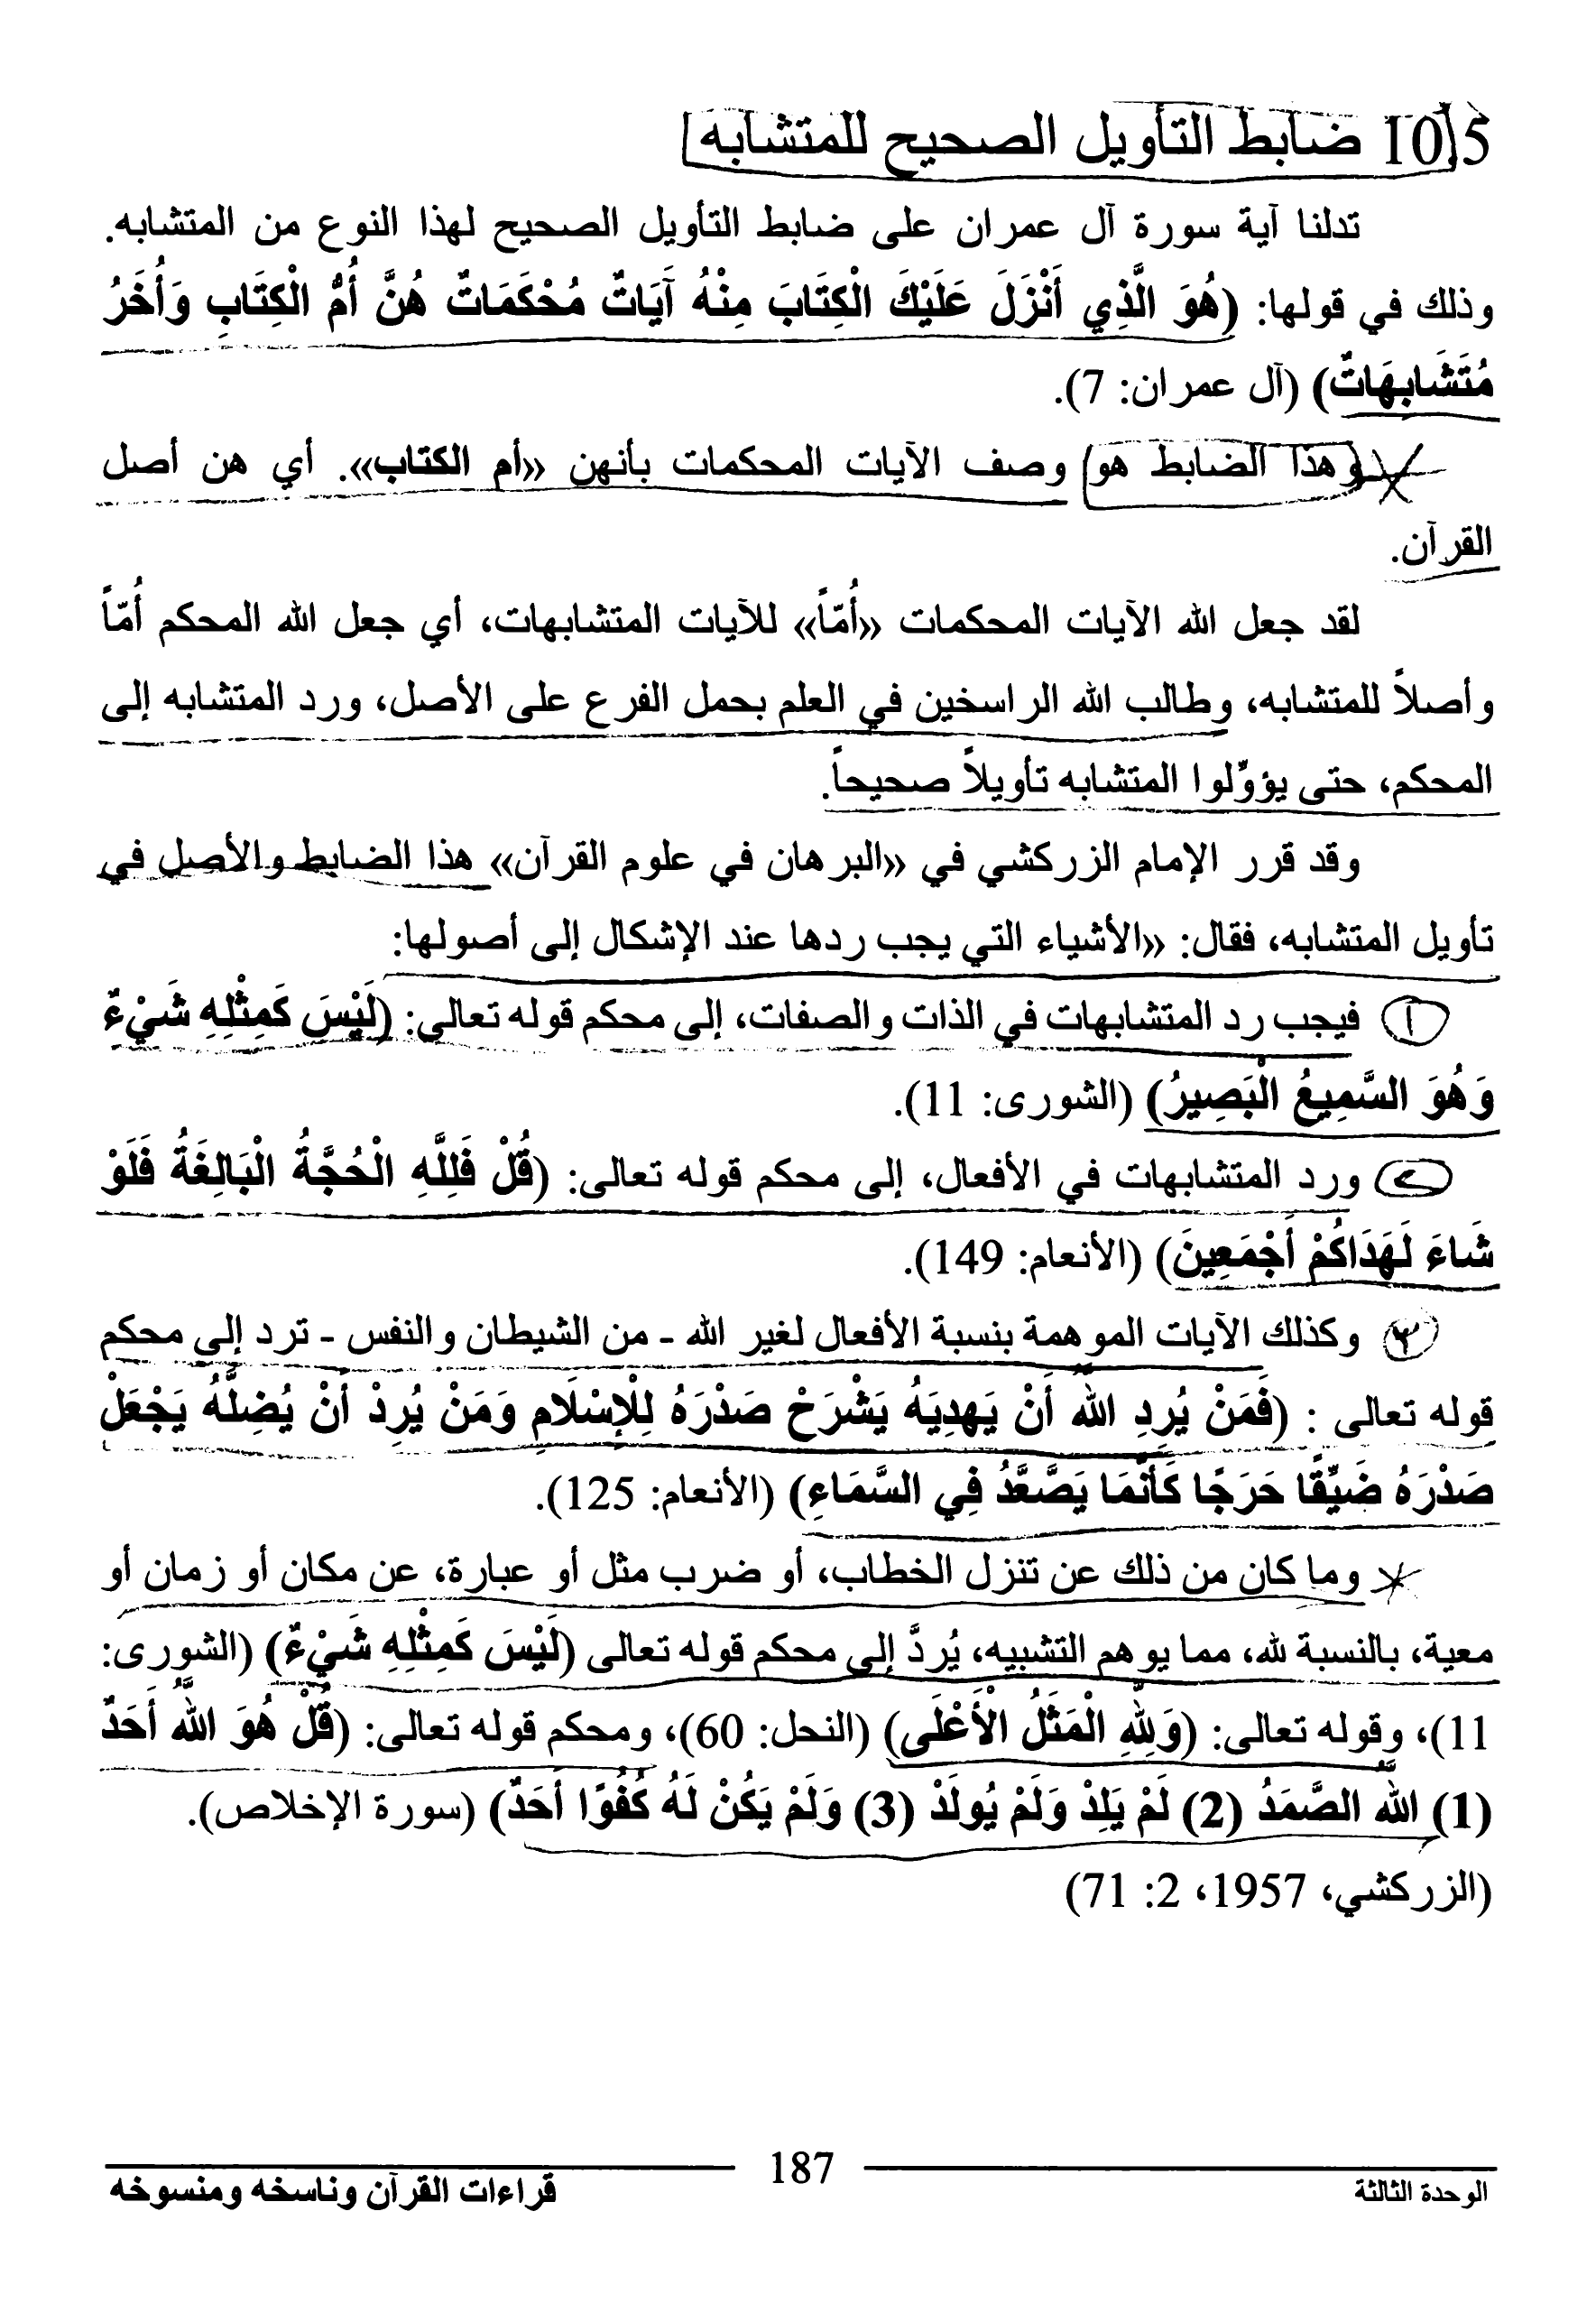 10.5 ضابط التأويل الصحيح للمتشابه
تدلنا آية سورة آل عمران على ضابط التأويل الصحيح لهذا النوع من المتشابه.
وذلك في قولها: (هُوَ الَّذِي أَنْزَلَ عَلَيْكَ الْكِتَابَ مِنْهُ آيَاتٌ مُحْكَمَاتٌ هُنَّ أُمُّ الْكِتَابِ وَأُخَرُ
مُتَشَابِهَاتٌ) (آل عمران: 7).
وهذا الضابط هو وصف الآيات المحكمات بأنهن «أم الكتاب». أي هن أصل
القرآن.
لقد جعل الله الآيات المحكمات «أُمّاً» للآيات المتشابهات، أي جعل الله المحكم أُمّاً
وأصلاً للمتشابه، وطالب الله الراسخين في العلم بحمل الفرع على الأصل، ورد المتشابه إلى
المحكم، حتى يؤوِّلوا المتشابه تأويلاً صحيحاً.
وقد قرر الإمام الزركشي في «البرهان في علوم القرآن» هذا الضابط والأصل في
تأويل المتشابه، فقال: «الأشياء التي يجب ردها عند الإشكال إلى أصولها:
١ فيجب رد المتشابهات في الذات والصفات، إلى محكم قوله تعالى: (لَيْسَ كَمِثْلِهِ شَيْءٌ
وَهُوَ السَّمِيعُ الْبَصِيرُ) (الشورى: 11).
٢ ورد المتشابهات في الأفعال، إلى محكم قوله تعالى: (قُلْ فَلِلَّهِ الْحُجَّةُ الْبَالِغَةُ فَلَوْ
شَاءَ لَهَدَاكُمْ أَجْمَعِينَ) (الأنعام: 149).
٣ وكذلك الآيات الموهمة بنسبة الأفعال لغير الله - من الشيطان والنفس - ترد إلى محكم
قوله تعالى : (فَمَنْ يُرِدِ اللَّهُ أَنْ يَهدِيَهُ يَشْرَحْ صَدْرَهُ لِلْإِسْلَامِ وَمَنْ يُرِدْ أَنْ يُضِلَّهُ يَجْعَلْ
صَدْرَهُ ضَيِّقًا حَرَجًا كَأَنَّمَا يَصَّعَّدُ فِي السَّمَاءِ) (الأنعام: 125).
وما كان من ذلك عن تنزل الخطاب، أو ضرب مثل أو عبارة، عن مكان أو زمان أو
معية، بالنسبة لله، مما يوهم التشبيه، يُردَّ إلى محكم قوله تعالى (لَيْسَ كَمِثْلِهِ شَيْءٌ) (الشورى:
11)، وقوله تعالى: (وَلِلَّهِ الْمَثَلُ الْأَعْلَى) (النحل: 60)، ومحكم قوله تعالى: (قُلْ هُوَ اللَّهُ أَحَدٌ
(1) اللَّهُ الصَّمَدُ (2) لَمْ يَلِدْ وَلَمْ يُولَدْ (3) وَلَمْ يَكُنْ لَهُ كُفُوًا أَحَدٌ) (سورة الإخلاص).
(الزركشي، 1957، 2: 71)
187
الوحدة الثالثة
قراءات القرآن وناسخه ومنسوخه